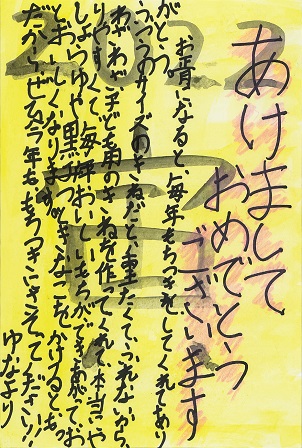 2022
あけまして
おめでとう
ございます
お正月になると、毎年もちつきをしてくれてあり
がとう。
ふつうのサイズのきねだと、重たくてつかれないから、
わざわざ子ども用のきねを作ってくれて本当にや
りやすくて、毎年おいしいもちができあがって、お
しょうゆや黒みつ、きなこをかけるともっ
とおいしくなります
だからぜひ今年ももちつきにさそってください!!
ゆなより